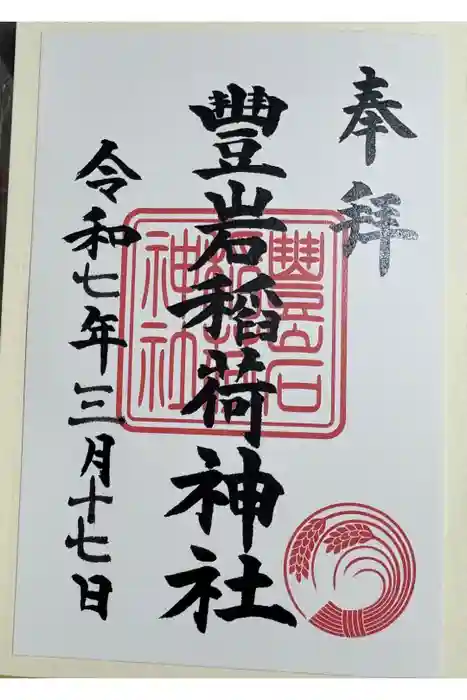 奉拝
豐岩稲荷神社
令和七年三月十七日
豐岩
稲荷
神社